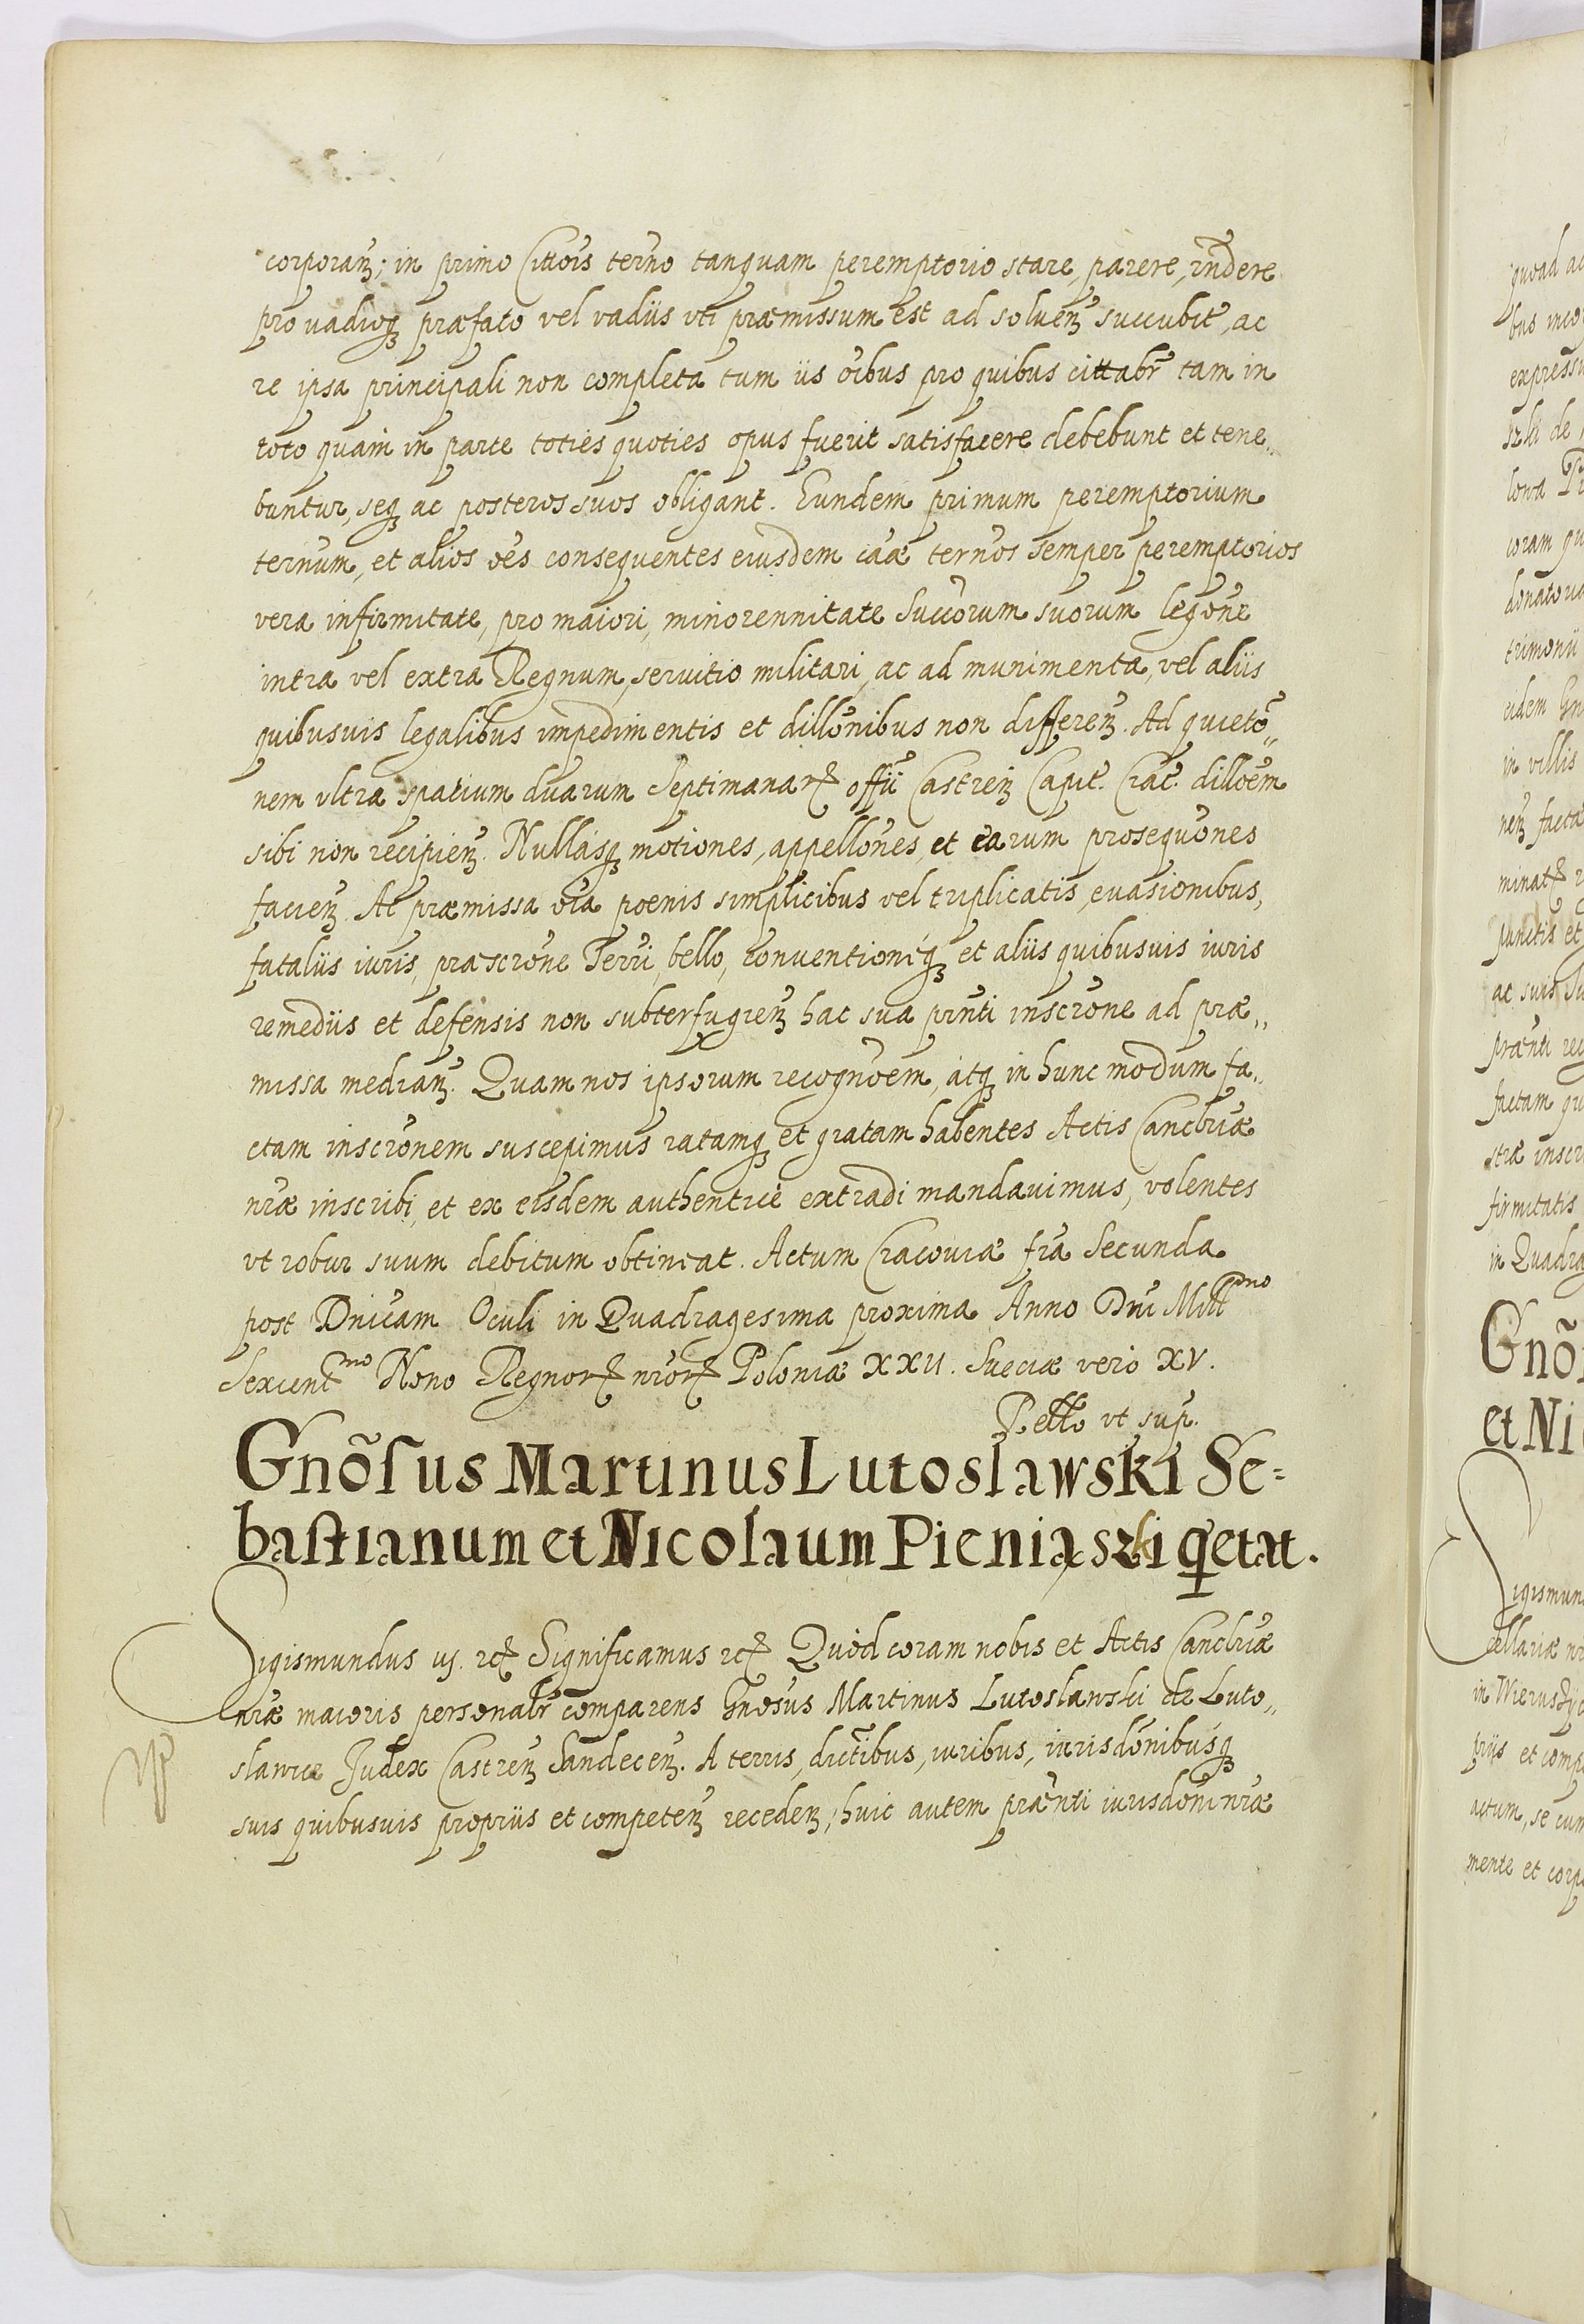 corporaʒ; in primo Cittõis terño tanquam peremptorio stare, parere, rñdere
pro uadioqʒ præfato vel vadiis vti præmissum est ad soluenʒ succubit, ac
re ipsa principali non completa tum iis oĩbus pro quibus cittabr̃ tam in
toto quam in parte toties quoties opus fuerit satisfacere debebunt et tene„
buntur, seqʒ ac posteros suos obligant. Eundem primum peremptorium
terñum, et alios oẽs consequentes eiusdem cãæ terños semper peremptorios
vera infirmitate, pro maiori, minorennitate Succorum suorum legõne
intra vel extra Regnum, seruitio militari, ac ad munimenta, vel aliis
quibusuis legalibus impedimentis et dillõnibus non differenʒ. Ad quietõ„
nem vltra spatium duarum Septimanarꝝ offii Castrenʒ Capit. Crac. dillõem
sibi non recipienʒ. Nullasqʒ motiones, appellõnes, et earum prosequõnes
facienʒ. At præmissa oĩa poenis simplicibus vel triplicatis, euasionibus,
fataliis iuris, præscrõne Terrĩ, bello, conuentioniqʒ et aliis quibusuis iuris
remediis et defensis non subterfugienʒ hac sua prñti inscrõne ad præ„
missa medianʒ. Quam nos ipsorum recognõem, atqʒ in hunc modum fa„
ctam inscrõnem suscepimus ratamqʒ et gratam habentes Actis Cancẽlriæ
nr̃æ inscribi, et ex eisdem authenticè extradi mandauimus, volentes
vt robur suum debitum obtineat. Actum Cracouiæ fr̃a Secunda
post Dnĩcam Oculi in Quadragesima proxima Anno Dnĩ Mill͠mo
Sexcent͠mo Nono Regnorꝝ nr̃orꝝ Poloniæ XXII. Sueciæ vero XV.
Rel͠lo vt sup.
Gnõsus Martinus Lutoslawski Se=
bastianum et Nicolaum Pieniąszki qͥetat.
Sigismundus iij. ꝛcꝫ Significamus ꝛcꝫ Quòd coram nobis et Actis Cancẽlriæ
nr̃æ maioris personalr̃ comparens Gnõsus Martinus Lutoslawski de Luto„
slawice Judex Castrenʒ Sandecenʒ. A terris, dictr̃ibus, iuribus, iurisdõnibusqʒ
suis quibusuis propriis et competenʒ recedenʒ; huic autem præñti iurisdõni nr̃æ